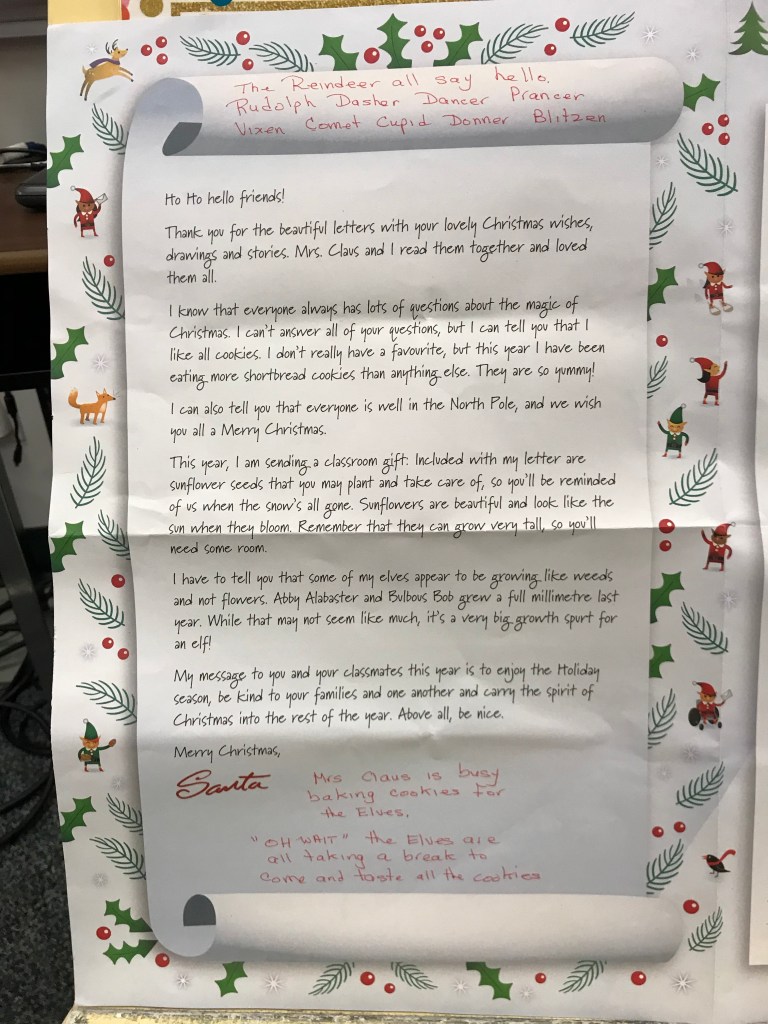 The Reindeer all say hello.
Rudolph Dasher Dancer Prancer
Vixen Comet Cupid Donner Blitzen
Ho Ho hello friends!
Thank you for the beautiful letters with your lovely Christmas wishes,
drawings and stories. Mrs. Claus and I read them together and loved
them all.
I know that everyone always has lots of questions about the magic of
Christmas. I can't answer all of your questions, but I can tell you that I
like all cookies. I don't really have a favourite, but this year I have been
eating more shortbread cookies than anything else. They are so yummy!
I can also tell you that everyone is well in the North Pole, and we wish
you all a Merry Christmas.
This year, I am sending a classroom gift: Included with my letter are
sunflower seeds that you may plant and take care of, so you'll be reminded
of us when the snow's all gone. Sunflowers are beautiful and look like the
sun when they bloom. Remember that they can grow very tall, so you'll
need some room.
I have to tell you that some of my elves appear to be growing like weeds
and not flowers. Abby Alabaster and Bulbous Bob grew a full millimetre last
year. While that may not seem like much, it's a very big growth spurt for
an elf!
My message to you and your classmates this year is to enjoy the Holiday
season, be kind to your families and one another and carry the spirit of
Christmas into the rest of the year. Above all, be nice.
Merry Christmas,
Santa
Mrs Claus is busy
baking cookies for
the Elves.
"OH WAIT" the Elves are
all taking a break to
come and taste all the cookies